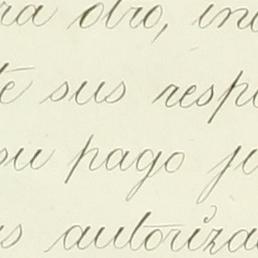 ra otro, in
te sus resp
su pago j
s autoriza